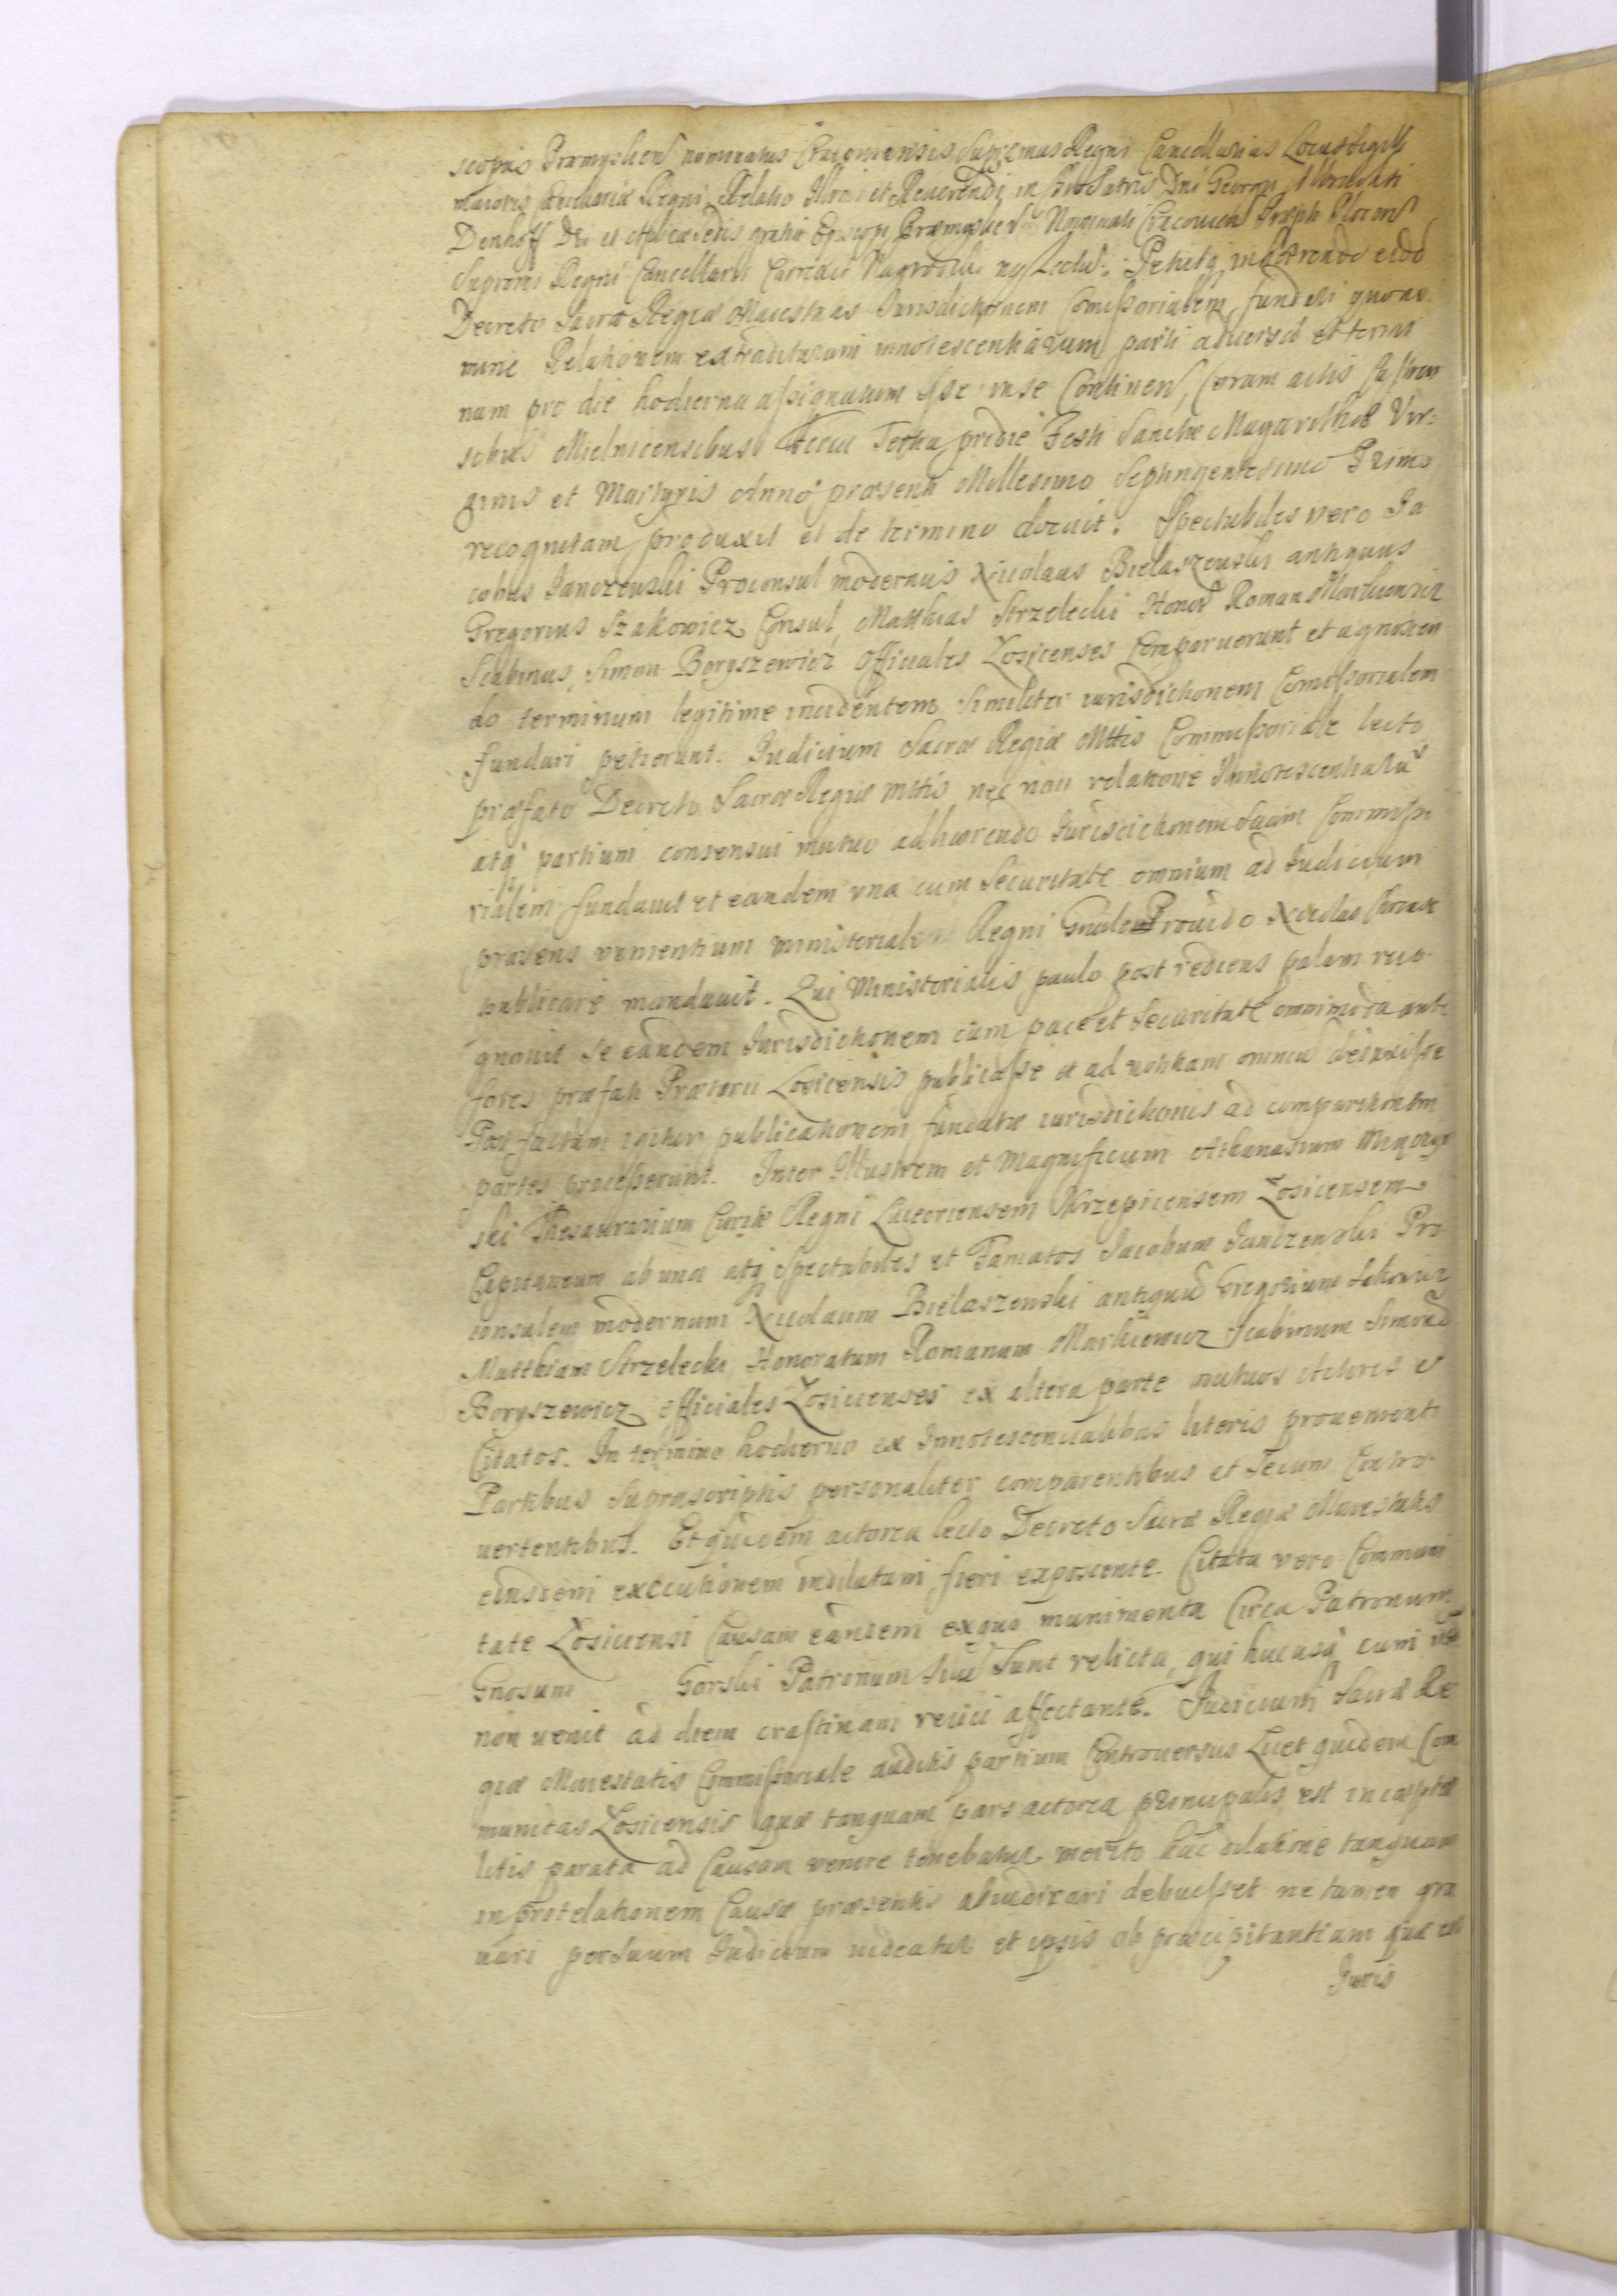 scopus Præmyslien nominatus Cracoviensis Supremus Regni Cancellarius Locus Sigilli
maioris Cancellariæ Regni Relatio Illrmi et Reuerendi in Xto Patris Dni Georgii Alberti
Denhoff Dei et Aplicæ Sedis gratia Episcopi Præmyslien Nominati Cracovien Præpti Plocen
Supremi Regni Cancellarii Lectu: Petiitq inhærendo eidē
Decreto Sacræ Regiæ Maiestatis Jurisdictionem Comissorialem fundari quo ac
nunc Relationem extraditarum innotescentiarum parti adversæ et termi
num pro die hodierna assignatum esse in se Continen, coram actis Castren
sibus Mielnicensibus Feria Tertia pridie Festi Sanctæ Magarethæ Vir:
ginis et Martyris Anno præsenti Millesimo Septingentesimo Primo
recognitam produxit et de termino docuit. Spectabiles vero Ja
cobus Janczewski Proconsul modernus Nicolaus Bielaszewski antiquus
Gregorius Szakowicz Consul, Matthias Strzelecki Honor Roman Markiewicz
Scabinus, Simon Boryszewicz Officiales Łosicenses Comparuerunt et agnoscen
do terminum legitime incidentem Similiter iurisdictionem Comissorialem
fundari petierunt. Judicium Sacræ Regiæ Mttis Commissoriale lecto
præfato Decreto Sacræ Regiæ Mttis nec non relatione Innotescentiarū
atq partium consensui mutuo adhærendo Jurisdictionem Suam Commisso
rialem fundavit et eandem una cum Securitate omnium ad Judicium
præsens venientium ministerialem Regni Gnalem Providō Nicolaō
publicari mandavit. Qui Ministerialis paulo post rediens palam reco
gnovit se eandem Jurisdictionem cum pace et Securitate omnimoda ante
fores præfati Prætorii Łosicensis publicasse et ad notitiam omniū deduxisse
Post factam igitur publicationem fundatæ iurisdictionis ad comparitionem
partes processerunt. Inter Illustrem et Magnificum Athanasium Miączyń
ski Thesaurarium Curiæ Regni Luceoriensem Krzepicensem Łosicensem
Capitaneum ab una atq Spectabiles et Famatos Jacobum Janczewski Pro
consulem modernum Nicolaum Bielaszewski antiquū Gregorium Sakowicz
Matthiam Strzelecki, Honoratum Romanum Markiewicz Scabinum Simonē
Boryszewicz officiales Łosicenses ex altera parte mutuos Actores et
Citatos. In termino hodierno ex Innotescentialibus literis provenienti
Partibus Suprascriptis personaliter comparentibus et Secum Contro
vertentibus. Et quidem actorea lecto Decreto Sacræ Regiæ Maiestatis
eiusdem executionem indilatam fieri exposcente. Citata vero Communi
tate Łosicensi Causam eandem ex quo munimenta Circa Patronum
Gnosum Gorski Patronum Suū Sunt relicta, qui hucusq cum
non venit ad diem crastinam reiici affectante. Judicium Sacræ Re
giæ Maiestatis Commissoriale auditis partium Controversiis Licet quidem Com
munitas Łosicensis quæ tanquam pars actorea principalis est in cæpta
litis parata ad Causam venire tenebatur merito hac dilatione tanquam
in protelationem Causæ præsentis abiudicari debuisset ne tamen gra
vari per Suum Judicium videatur et ipsis ob præcipitantiam quæ est
Juris